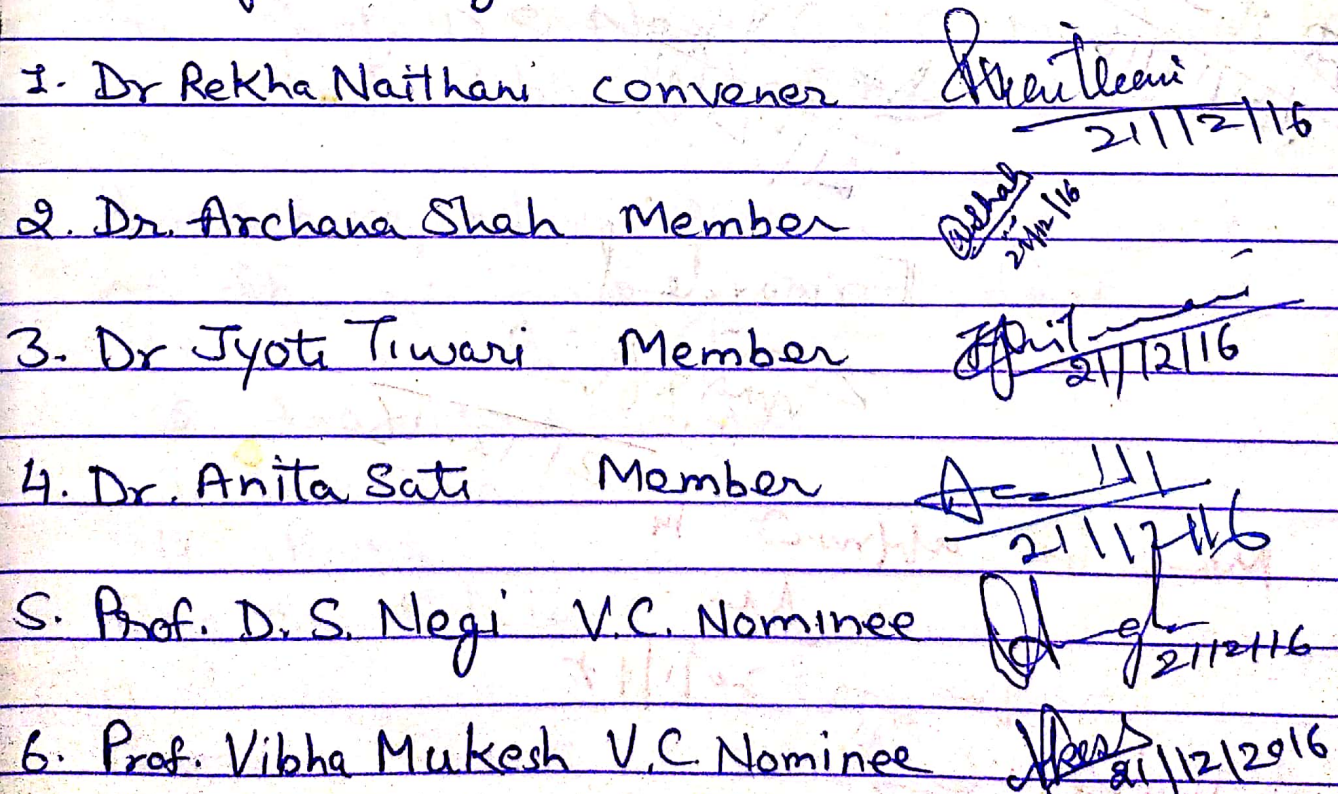 1. Dr Rekha Naithani convener 21/12/16
2. Dr. Archana Shah Member 21/12/16
3. Dr Jyoti Tiwari Member 21/12/16
4. Dr. Anita Sati Member 21/12/16
5. Prof. D. S. Negi V.C. Nominee 21/12/16
6. Prof. Vibha Mukesh V.C. Nominee 21/12/2016